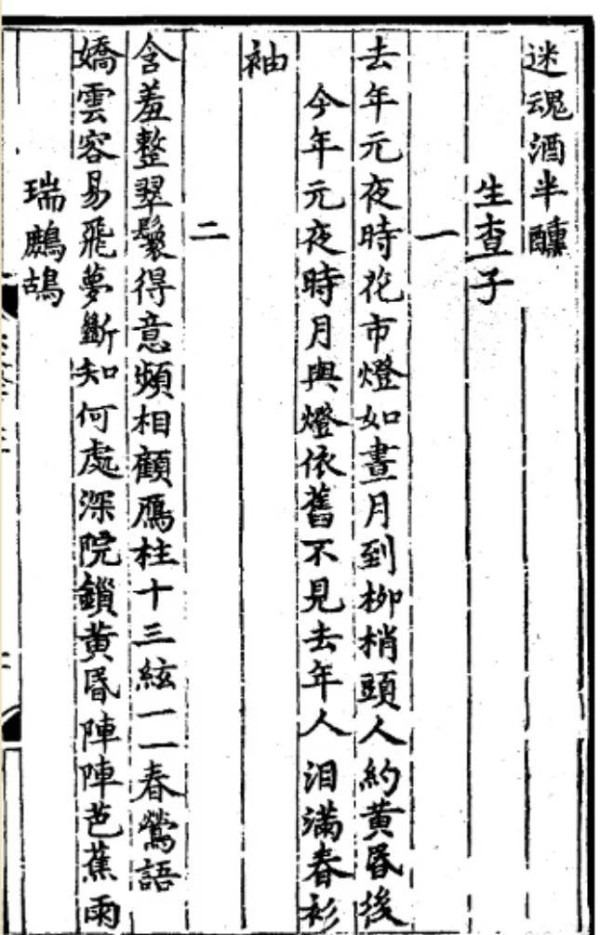 迷魂酒半醺
生查子
一
去年元夜時花市燈如晝月到柳梢頭人約黃昏後
今年元夜時月與燈依舊不見去年人泪滿春衫
袖
二
含羞整翠鬟得意頻相顧鴈柱十三絃一一春鶯語
嬌雲容易飛夢斷知何處深院鎖黃昏陣陣芭蕉雨
瑞鷓鴣